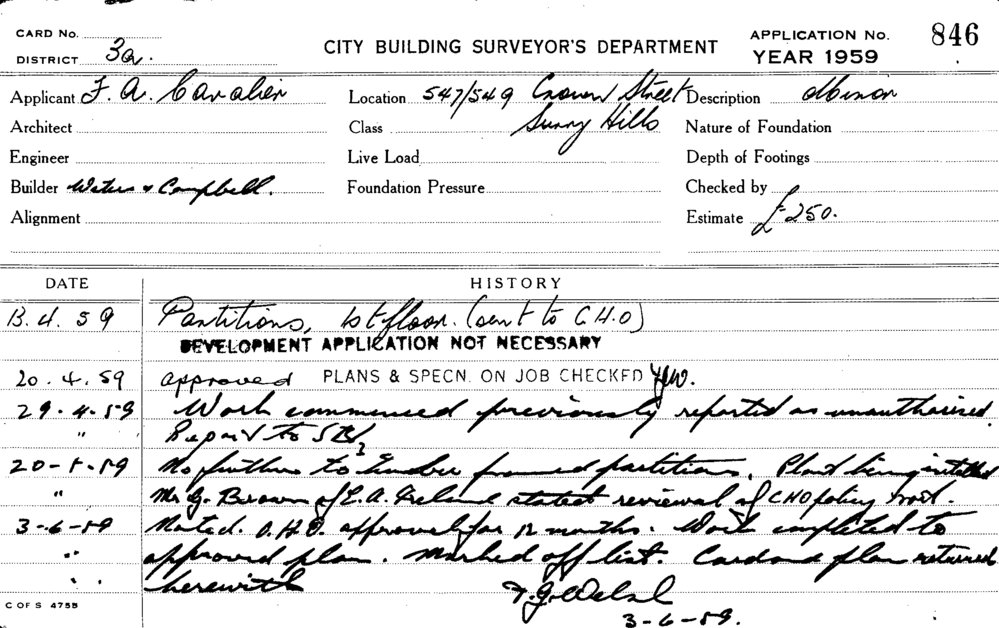 CARD No.
DISTRICT 3a.
CITY BUILDING SURVEYOR'S DEPARTMENT
APPLICATION No. 846
YEAR 1959
Applicant F. A. Cavalier
Location 547/549 Crown Street
Surry Hills
Description Minor
Architect
Class
Nature of Foundation
Engineer
Live Load
Depth of Footings
Builder Waters & Campbell.
Foundation Pressure
Checked by
Alignment
Estimate £250.
DATE HISTORY
13.4.59 Partitions, 1st floor. (sent to C.H.O)
DEVELOPMENT APPLICATION NOT NECESSARY
20.4.59 approved PLANS & SPECN. ON JOB CHECKED
29.4.59 Work commenced previously reported as unauthorised.
" Report to
20-5-59 No further to timber framed partitions. Plant being installed
" Mr G. Brown of E. A. Ireland stated reviewal of CHO policy
3-6-59 Noted. C.H.O. approval for 12 months. Work completed to
" approved plan. Marked off list. Card and plan returned
" herewith
3-6-59.
C OF S 475B